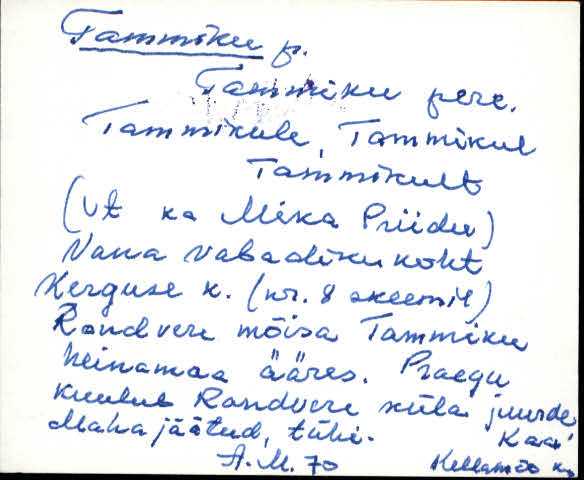 Tammiku p.
Tammiku pere.
Tammikule, Tammikul
Tammikult
(Vt ka Mika Priidu)
Vana vabadiku koht
Kerguse k. (nr. 8 skeemil)
Rondvere mõisa Tammiku
heinamaa ääres. Praegu
kuulub Rondvere küla juurde,
Maha jäetud, tühi. Kaa
A.M. 70 k.